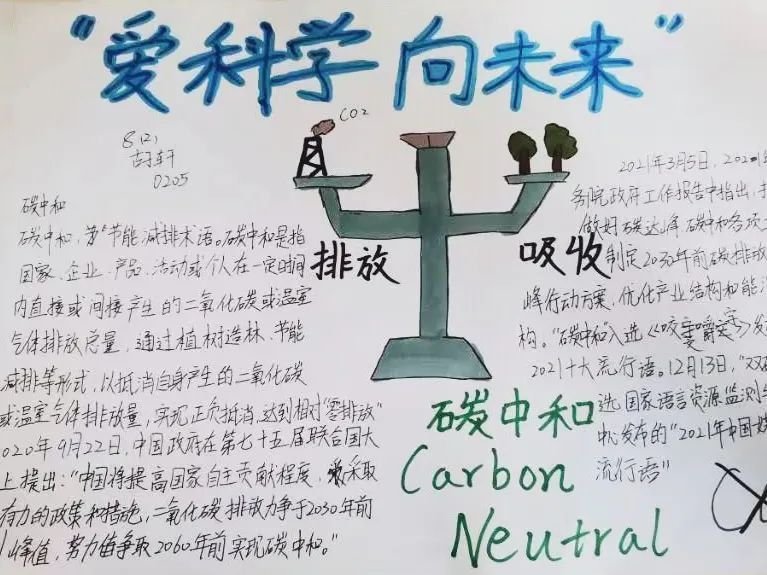 “爱科学 向未来”
8(2)
胡轩
0205
CO2
排放
吸收
碳中和
碳中和,节能减排术语。碳中和是指
国家、企业、产品、活动或个人在一定时间
内直接或间接产生的二氧化碳或温室
气体排放总量,通过植树造林、节能
减排等形式,以抵消自身产生的二氧化碳
或温室气体排放量,实现正负抵消,达到相对“零排放”
020年9月22日,中国政府在第七十五届联合国大
上提出:“中国将提高国家自主贡献程度,采取
有力的政策和措施,二氧化碳排放力争于2030年前
峰值,努力争取2060年前实现碳中和。”
2021年3月5日,202
务院政府工作报告中指出,
做好碳达峰 碳中和各项
制定2030年前碳排放
峰行动方案,优化产业结构和能
构。“碳中和”入选《咬文嚼字》发
2021十大流行语。12月13日,“双碳
选国家语言资源监测
中心发布的“2021年中国媒
流行语”
碳中和
Carbon
Neutral